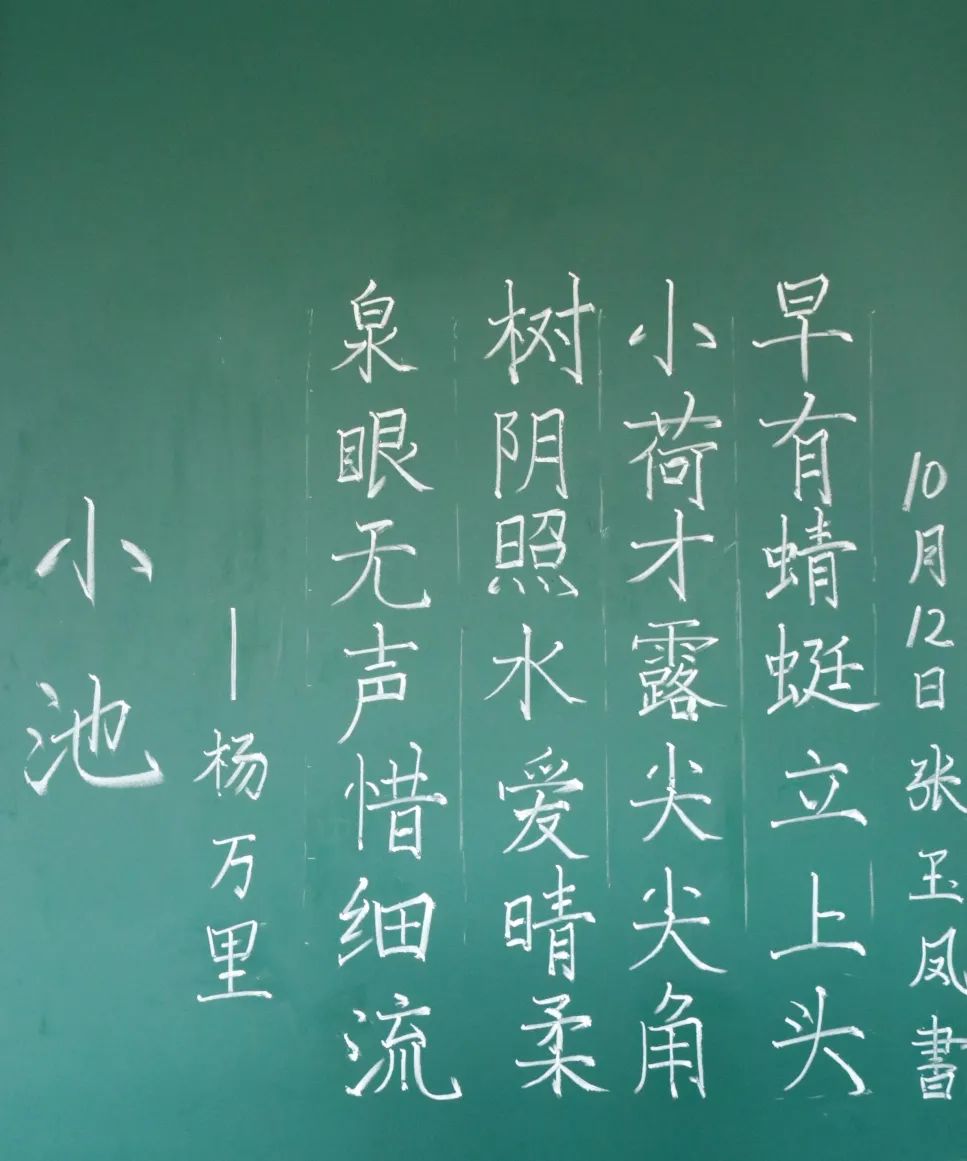 小池
—杨万里
泉眼无声惜细流
树阴照水爱晴柔
小荷才露尖尖角
早有蜻蜓立上头
10月12日张玉凤書